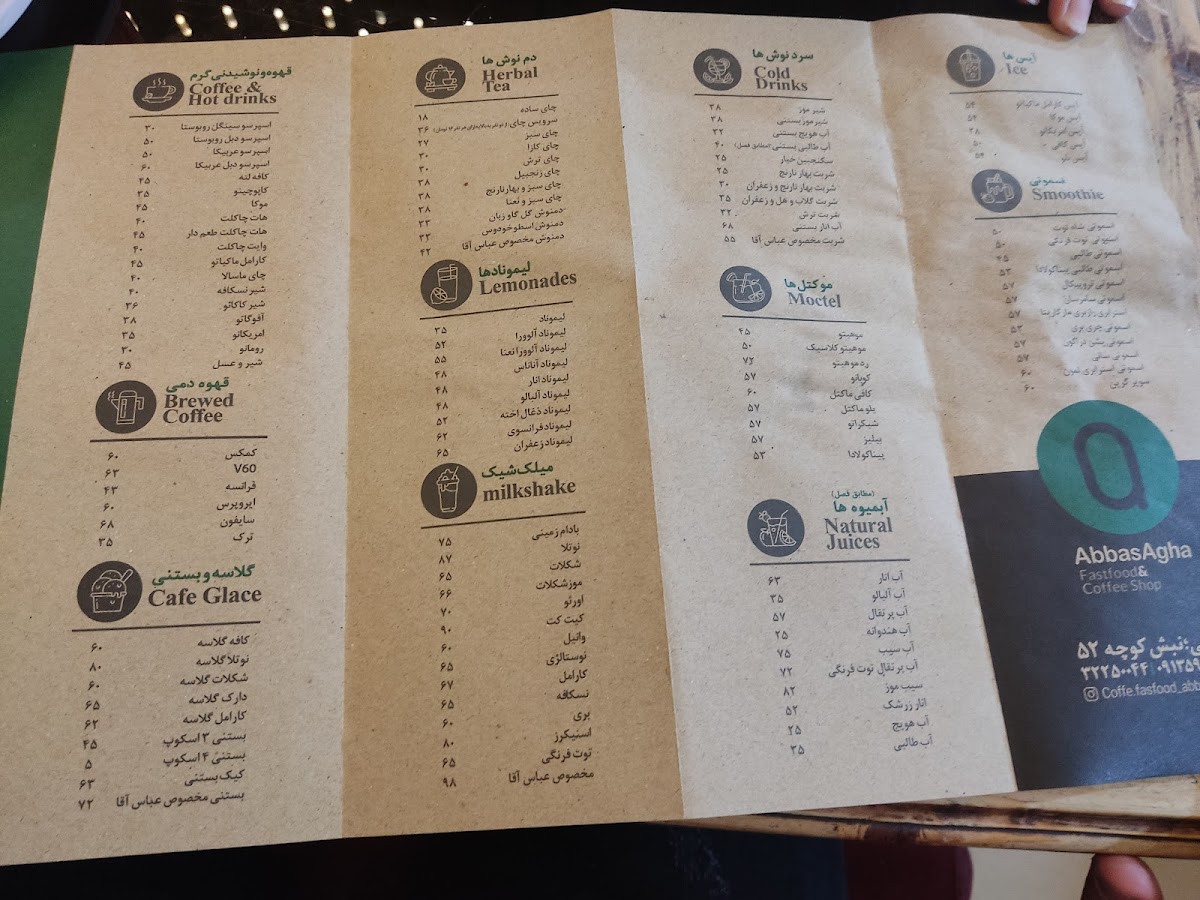 قهوه و نوشیدنی گرم
Coffee &
Hot drinks
اسپرسو سینگل روبوستا ۳۰
اسپرسو دبل روبوستا ۵۰
اسپرسو عربیکا ۵۰
اسپرسو دبل عربیکا ۶۰
کافه لته ۴۵
کاپوچینو ۳۵
موکا ۴۵
هات چاکلت ۴۰
هات چاکلت طعم دار ۴۵
وایت چاکلت ۴۰
کارامل ماکیاتو ۴۵
چای ماسالا ۴۰
شیر نسکافه ۴۰
شیر کاکائو ۳۶
آفوگاتو ۳۸
امریکانو ۳۵
رومانو ۳۰
شیر و عسل ۴۵
قهوه دمی
Brewed
Coffee
کمکس ۶۰
V60 ۶۳
فرانسه ۴۳
ایروپرس ۶۰
سایفون ۶۸
ترک ۳۵
گلاسه و بستنی
Cafe Glace
کافه گلاسه ۶۰
نوتلا گلاسه ۸۰
شکلات گلاسه ۶۰
دارک گلاسه ۶۵
کارامل گلاسه ۶۲
بستنی ۳ اسکوپ ۴۵
بستنی ۴ اسکوپ ۵
کیک بستنی ۶۳
بستنی مخصوص عباس آقا ۷۲
دم نوش ها
Herbal
Tea
چای ساده ۱۸
سرویس چای ۳۶
چای سبز ۲۷
چای کازا ۳۰
چای ترش ۳۰
چای زنجبیل ۳۸
چای سبز و بهارنارنج ۳۸
چای سبز و نعنا ۳۸
دمنوش گل گاو زبان ۳۳
دمنوش اسطوخودوس ۳۳
دمنوش مخصوص عباس آقا ۴۲
لیمونادها
Lemonades
لیموناد ۳۵
لیموناد آلوورا ۵۲
لیموناد آلوورا نعنا ۵۵
لیموناد آناناس ۴۸
لیموناد انار ۴۸
لیموناد آلبالو ۴۸
لیموناد ذغال اخته ۵۲
لیموناد فرانسوی ۶۲
لیموناد زعفران ۶۵
میلک شیک
milkshake
بادام زمینی ۷۵
نوتلا ۸۷
شکلات ۶۵
موز شکلات ۶۶
اورئو ۷۰
کیت کت ۹۰
وانیل ۶۰
نوستالژی ۶۵
کارامل ۶۷
نسکافه ۶۵
بری ۶۰
اسنیکرز ۸۰
توت فرنگی ۶۵
مخصوص عباس آقا ۹۸
سرد نوش ها
Cold
Drinks
شیر موز ۳۸
شیر موز بستنی ۳۸
آب هویج بستنی ۳۲
آب طالبی بستنی (مطابق فصل) ۴۰
سکنجبین خیار ۲۵
شربت بهار نارنج ۲۵
شربت بهار نارنج و زعفران ۳۰
شربت گلاب و هل و زعفران ۳۵
شربت ترش ۳۲
آب انار بستنی ۶۸
شربت مخصوص عباس آقا ۵۵
موکتل ها
Moctel
موهیتو ۴۵
موهیتو کلاسیک ۵۰
ردموهیتو ۷۲
کوبانو ۵۷
کافی ماکتل ۶۰
بلو ماکتل ۵۷
شیکراتو ۵۷
بیلیز ۵۷
پیناکولادا ۵۳
(مطابق فصل)
آبمیوه ها
Natural
Juices
آب انار ۶۳
آب آلبالو ۳۵
آب پرتقال ۵۷
آب هندوانه ۲۵
آب سیب ۷۵
آب پرتقال توت فرنگی ۷۲
سیب موز ۸۲
انار زرشک ۵۲
آب هویج ۲۵
آب طالبی ۳۵
آیس ها
Ice
آیس کارامل ماکیاتو ۵۴
آیس موکا ۵۴
آیس امریکانو ۳۸
آیس کافی ۵۰
آیس تلو ۵۴
اسموتی
Smoothie
اسموتی شاه توت ۵۰
اسموتی توت فرنگی ۵۰
اسموتی طالبی ۴۵
اسموتی طالبی پیناکولادا ۵۳
اسموتی تروپیکال ۵۷
۵۷
۵۷
اسموتی چری بری ۵۳
اسموتی پشن دراگون ۵۷
۵۷
۶۰
سوپر گرین ۶۰
Q
AbbasAgha
Fastfood&
Coffee Shop
نبش کوچه ۵۲
۳۲۲۵۰۰۴۴ | ۰۹۱۳۵۹
Coffe.fasfood_abb